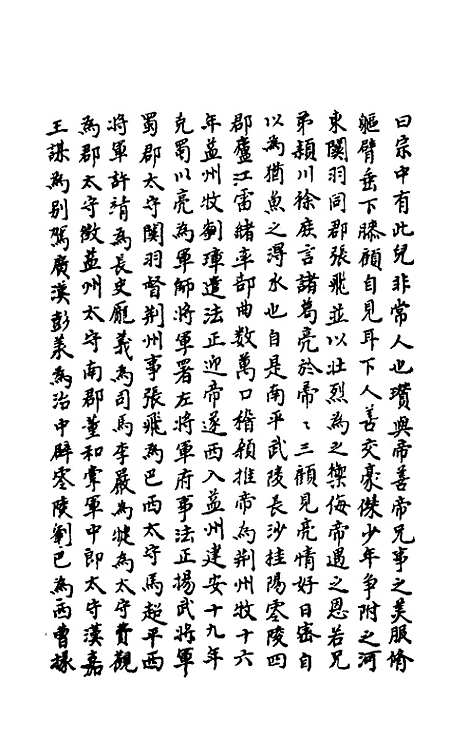 曰宗中有此兒非常人也瓚與帝善帝兄事之美服脩
軀臂垂下膝顧自見耳下人善交豪傑少年爭附之河
東関羽同郡張飛並以壮烈為之禦侮帝遇之恩若兄
弟頴川徐庶言諸葛亮於帝〻三顧見亮情好日密自
以為猶魚之淂水也自是南平武陵長沙桂陽零陵四
郡廬江雷緒率部曲数萬口稽顙推帝為荆州牧十六
年益州牧劉璋遣法正迎帝遂西入益州建安十九年
克蜀以亮為軍師將軍署左將軍府事法正揚武將軍
蜀郡太守関羽督荆州事張飛為巴西太守馬超平西
將軍許靖為長史龐羲為司馬李嚴為犍為太守費觀
為郡太守徴益州太守南郡董和掌軍中郎太守漢嘉
王謀為別駕廣漢彭羕為治中辟零陵劉巴為西曹掾